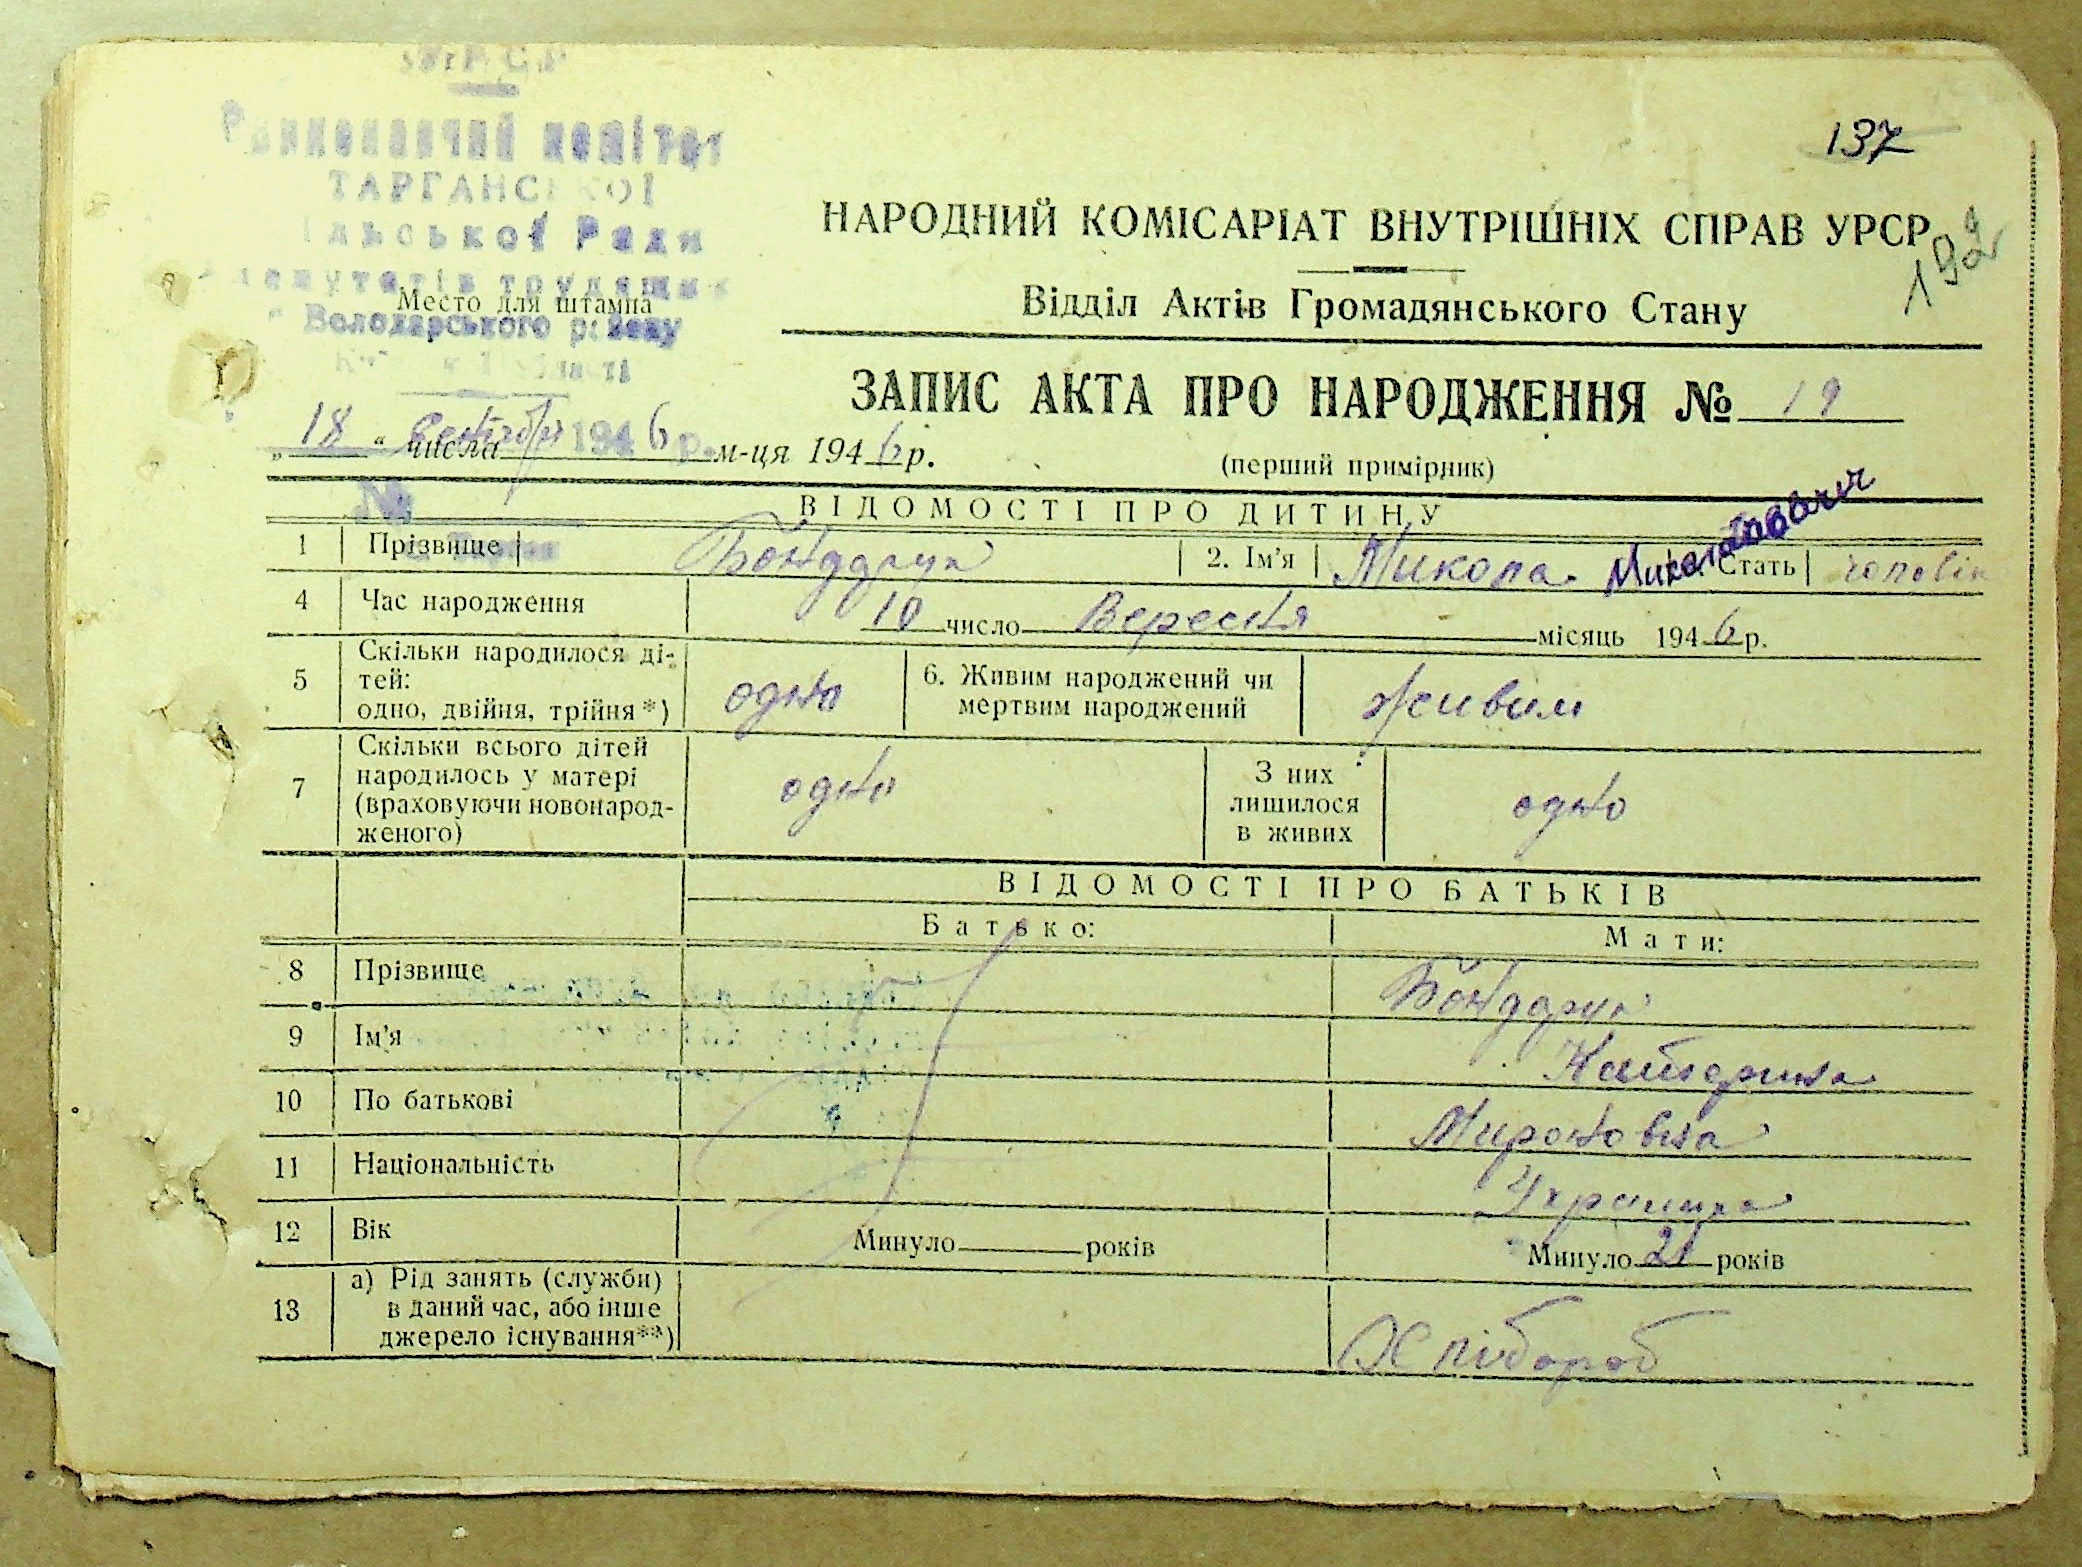 137
192
ТАРГАНСЬКОЇ
Ради
Володарського району
НАРОДНИЙ КОМІСАРІАТ ВНУТРІШНІХ СПРАВ УРСР
Место для штампа
Відділ Актів Громадянського Стану
ЗАПИС АКТА ПРО НАРОДЖЕННЯ № 19
„18“ числа сентября 1946 р. м-ця 1946 р.
(перший примірник)
№
ВІДОМОСТІ ПРО ДИТИНУ
1 Прізвище Бондарук 2. Ім'я Микола Стать чоловік
4 Час народження 10 число Вересня місяць 1946 р.
5 Скільки народилося ді-
тей:
одно, двійня, трійня*) одно 6. Живим народжений чи
мертвим народжений живим
7 Скільки всього дітей
народилось у матері
(враховуючи новонарод-
женого) одно З них
лишилося
в живих одно
ВІДОМОСТІ ПРО БАТЬКІВ
Батько: Мати:
8 Прізвище Бондарук
9 Ім'я Катерина
10 По батькові Мироновна
11 Національність Українка
12 Вік Минуло ___ років Минуло 21 років
13 а) Рід занять (служби)
в даний час, або інше
джерело існування**) Хлібороб